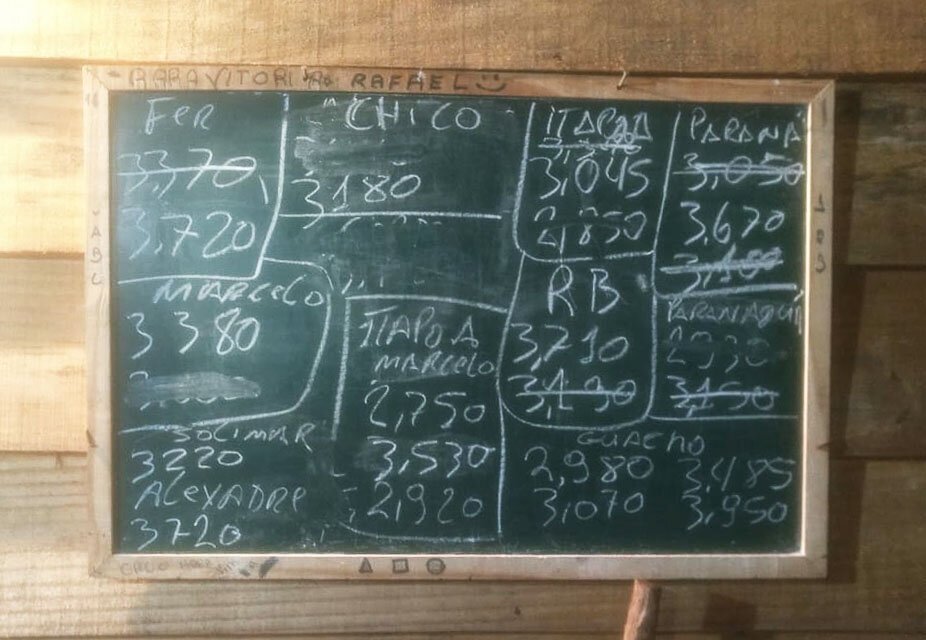 RAFAEL
FER
3,370
3,720
CHICO
3180
ITAPOA
3,045
2,850
PARANÁ
3,050
3,670
3,100
MARCELO
3380
ITAPOA
MARCELO
2,750
3,530
2,920
RB
3,710
3,190
PARANAGUÁ
2930
3,150
SOLIMAR
3220
ALEXADRE
3720
GUACHO
2,980 3,485
3,070 3,950